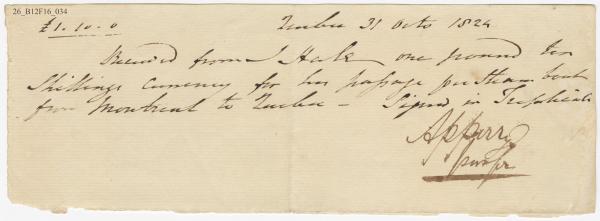 26_B12F16_034
£1.10.0 Quebec 31 Octo 1824
Received from J Hale one pound ten
Shillings currency for his passage
from Montreal to Quebec - Signed in Triplicate
A P Parry
purser